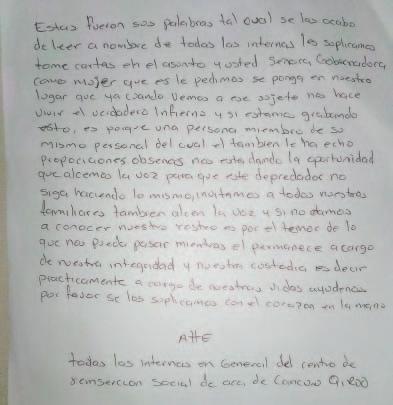 Estas Fueron sus palabras tal cual se las acabo
de leer a nombre de todas las internas les suplicamos
tome cartas en el asunto y usted Señora Gobernadora
como mujer que es le pedimos se ponga en nuestro
lugar que ya cuando vemos a ese sujeto nos hace
vivir el verdadero Infierno y si estamos grabando
esto, es porque una persona miembro de su
mismo personal del cual el tambien le ha echo
proporciones obsenas nos esta dando la oportunidad
que alcemos la voz para que este depredador no
siga haciendo lo mismo, invitamos a todos nuestros
familiares tambien alcen la voz y si no damos
a conocer nuestro rostro es por el temor de lo
que nos puede pasar mientras el permanece a cargo
de nuestra integridad y nuestra custodia es decir
practicamente a cargo de nuestras vidas ayudenos
por favor se los suplicamos con el corazon en la mano
ATTE
todas las internas en General del centro de
reinsercion social de aca de Cancun Q.Roo